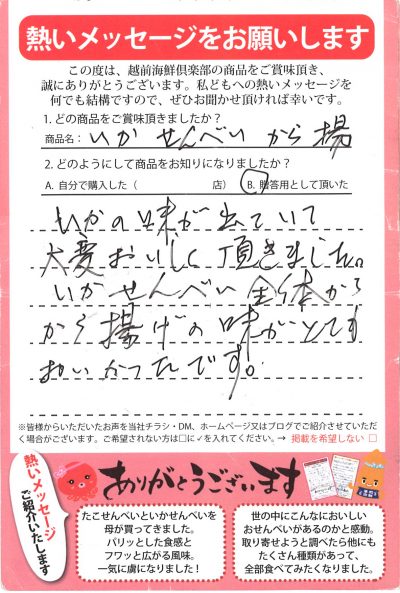 熱いメッセージをお願いします
この度は、越前海鮮倶楽部の商品をご賞味頂き、
誠にありがとうございます。私どもへの熱いメッセージを
何でも結構ですので、ぜひお聞かせ頂ければ幸いです。
1. どの商品をご賞味頂きましたか?
商品名: いか せんべい から揚
2. どのようにして商品をお知りになりましたか?
A. 自分で購入した ( 店) B. 贈答用として頂いた
いかの味が出ていて
大変おいしく頂きました。
いかせんべい全体から
から揚げの味がとても
おいかったです。
※皆様からいただいたお声を当社チラシ・DM、ホームページ又はブログでご紹介させていただ
く場合がございます。ご希望されない方は□に✓を入れてください。→ 掲載を希望しない □
熱いメッセージ
ご紹介いたします
ありがとうございます
たこせんべいといかせんべいを
母が買ってきました。
パリッとした食感と
フワッと広がる風味。
一気に虜になりました!
世の中にこんなにおいしい
おせんべいがあるのかと感動。
取り寄せようと調べたら他にも
たくさん種類があって、
全部食べてみたくなりました。